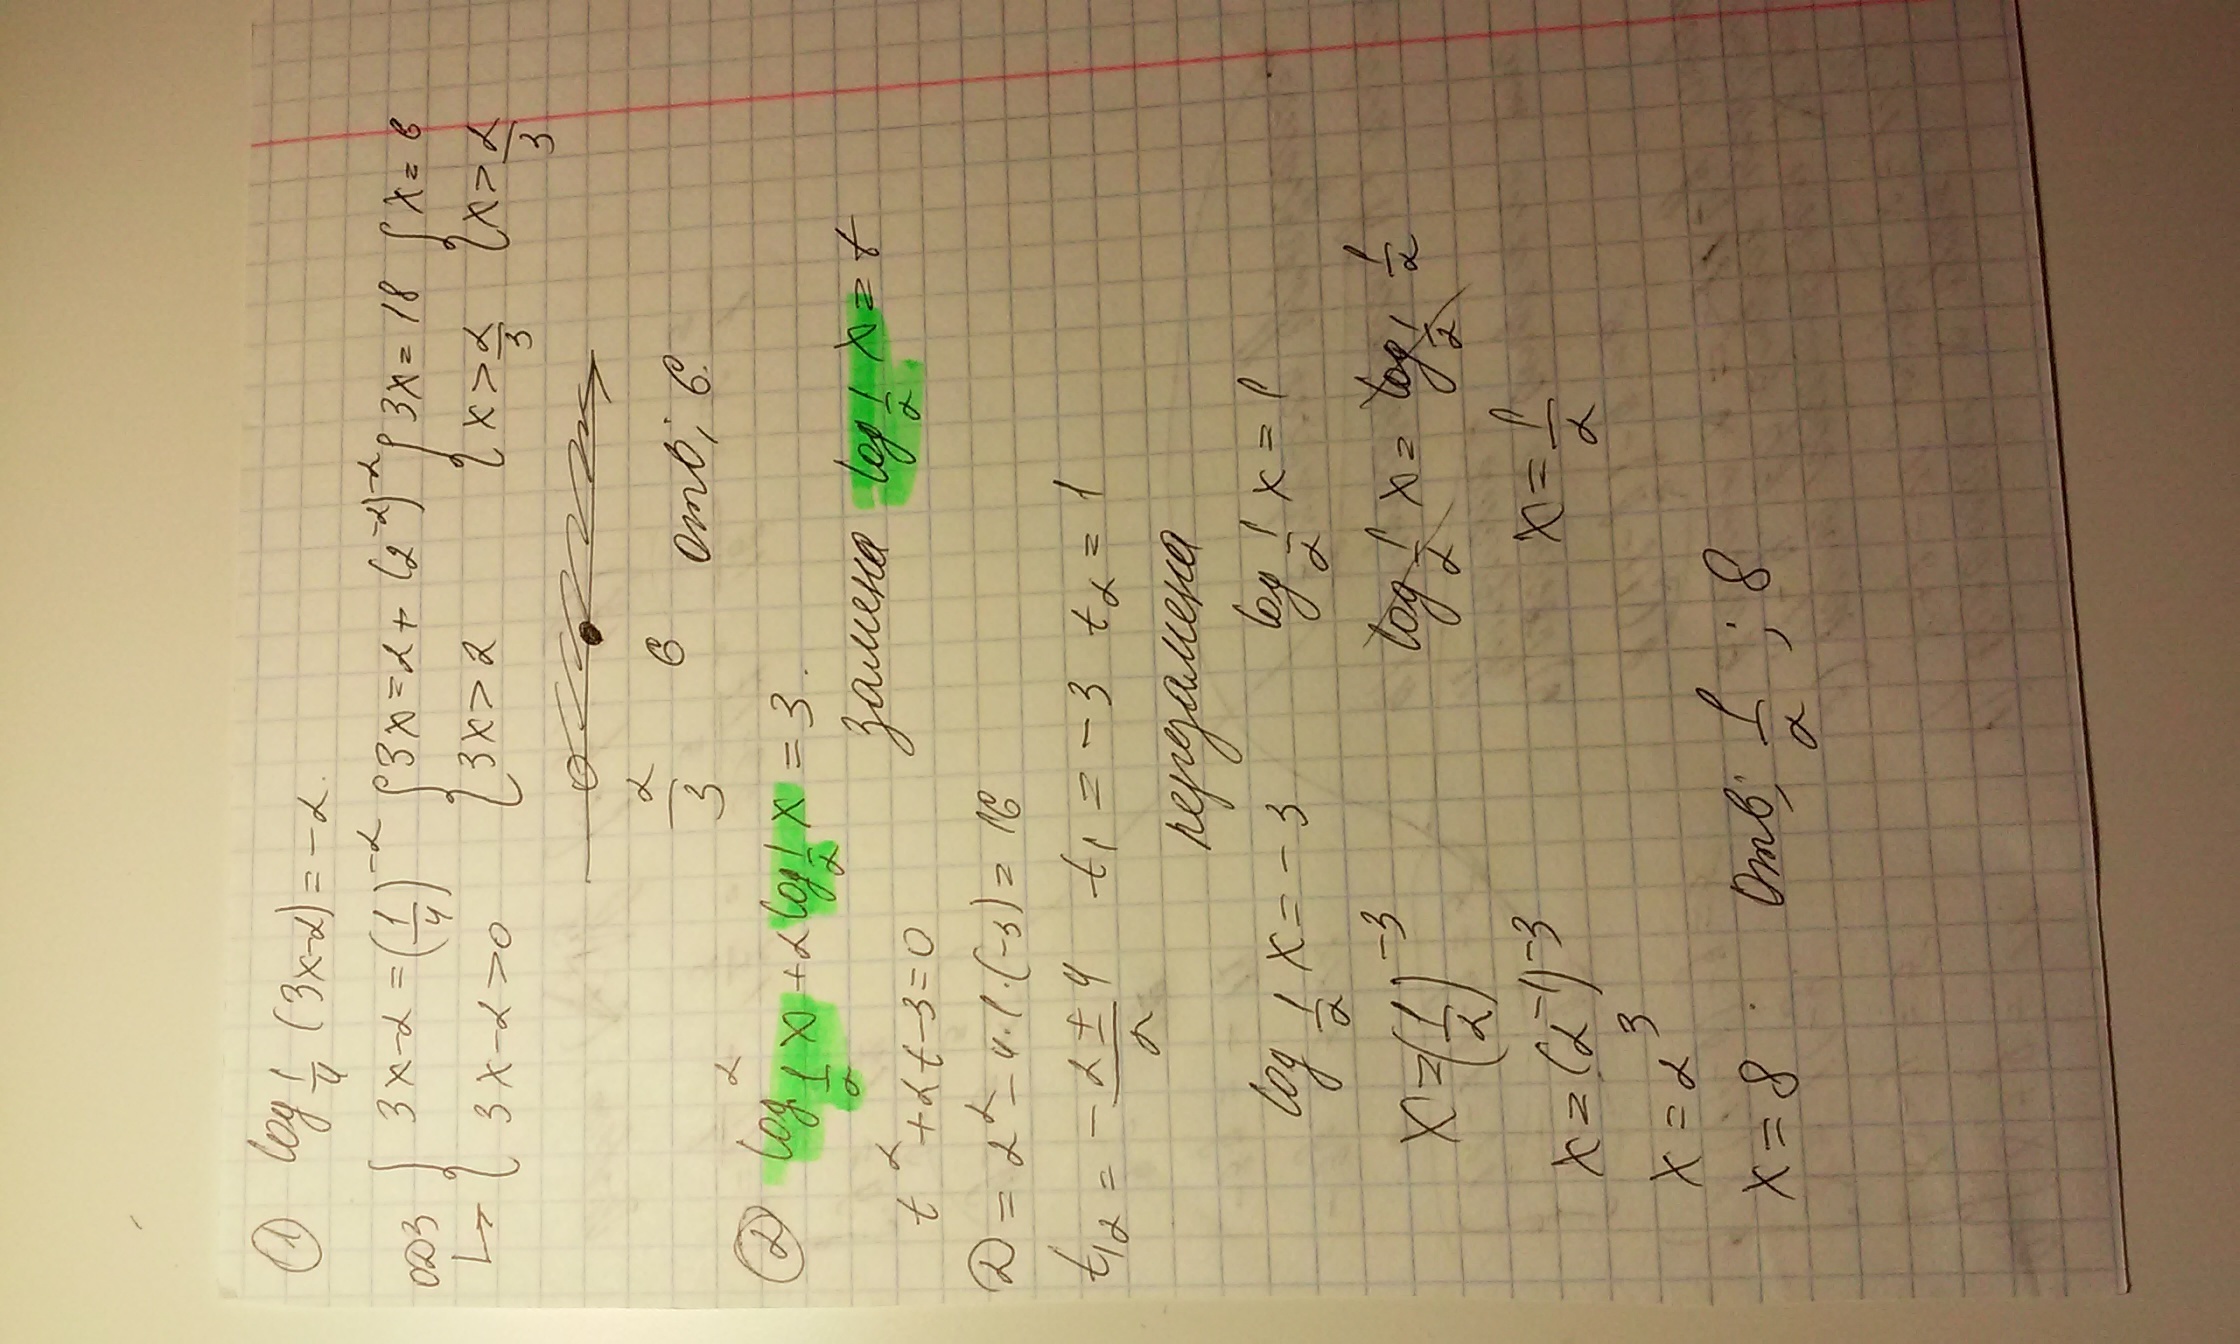 ① log 1/4 (3x-2) = -2.
ОДЗ { 3x-2 = (1/4)^-2 { 3x = 2 + (2^-2)^-2 { 3x = 18 { x = 6
↳ { 3x-2 > 0 { 3x > 2 { x > 2/3 { x > 2/3
2/3 6
Отв; 6.
② log² 1/2 x + 2 log 1/2 x = 3.
замена log 1/2 x = t
t² + 2t - 3 = 0
D = 2² - 4·1·(-3) = 16
t1,2 = (-2 ± 4)/2 t1 = -3 t2 = 1
перезамена
log 1/2 x = -3 log 1/2 x = 1
x = (1/2)^-3 log 1/2 x = log 1/2 1/2
x = (2^-1)^-3 x = 1/2
x = 2^3
x = 8. Отв; 1/2 ; 8